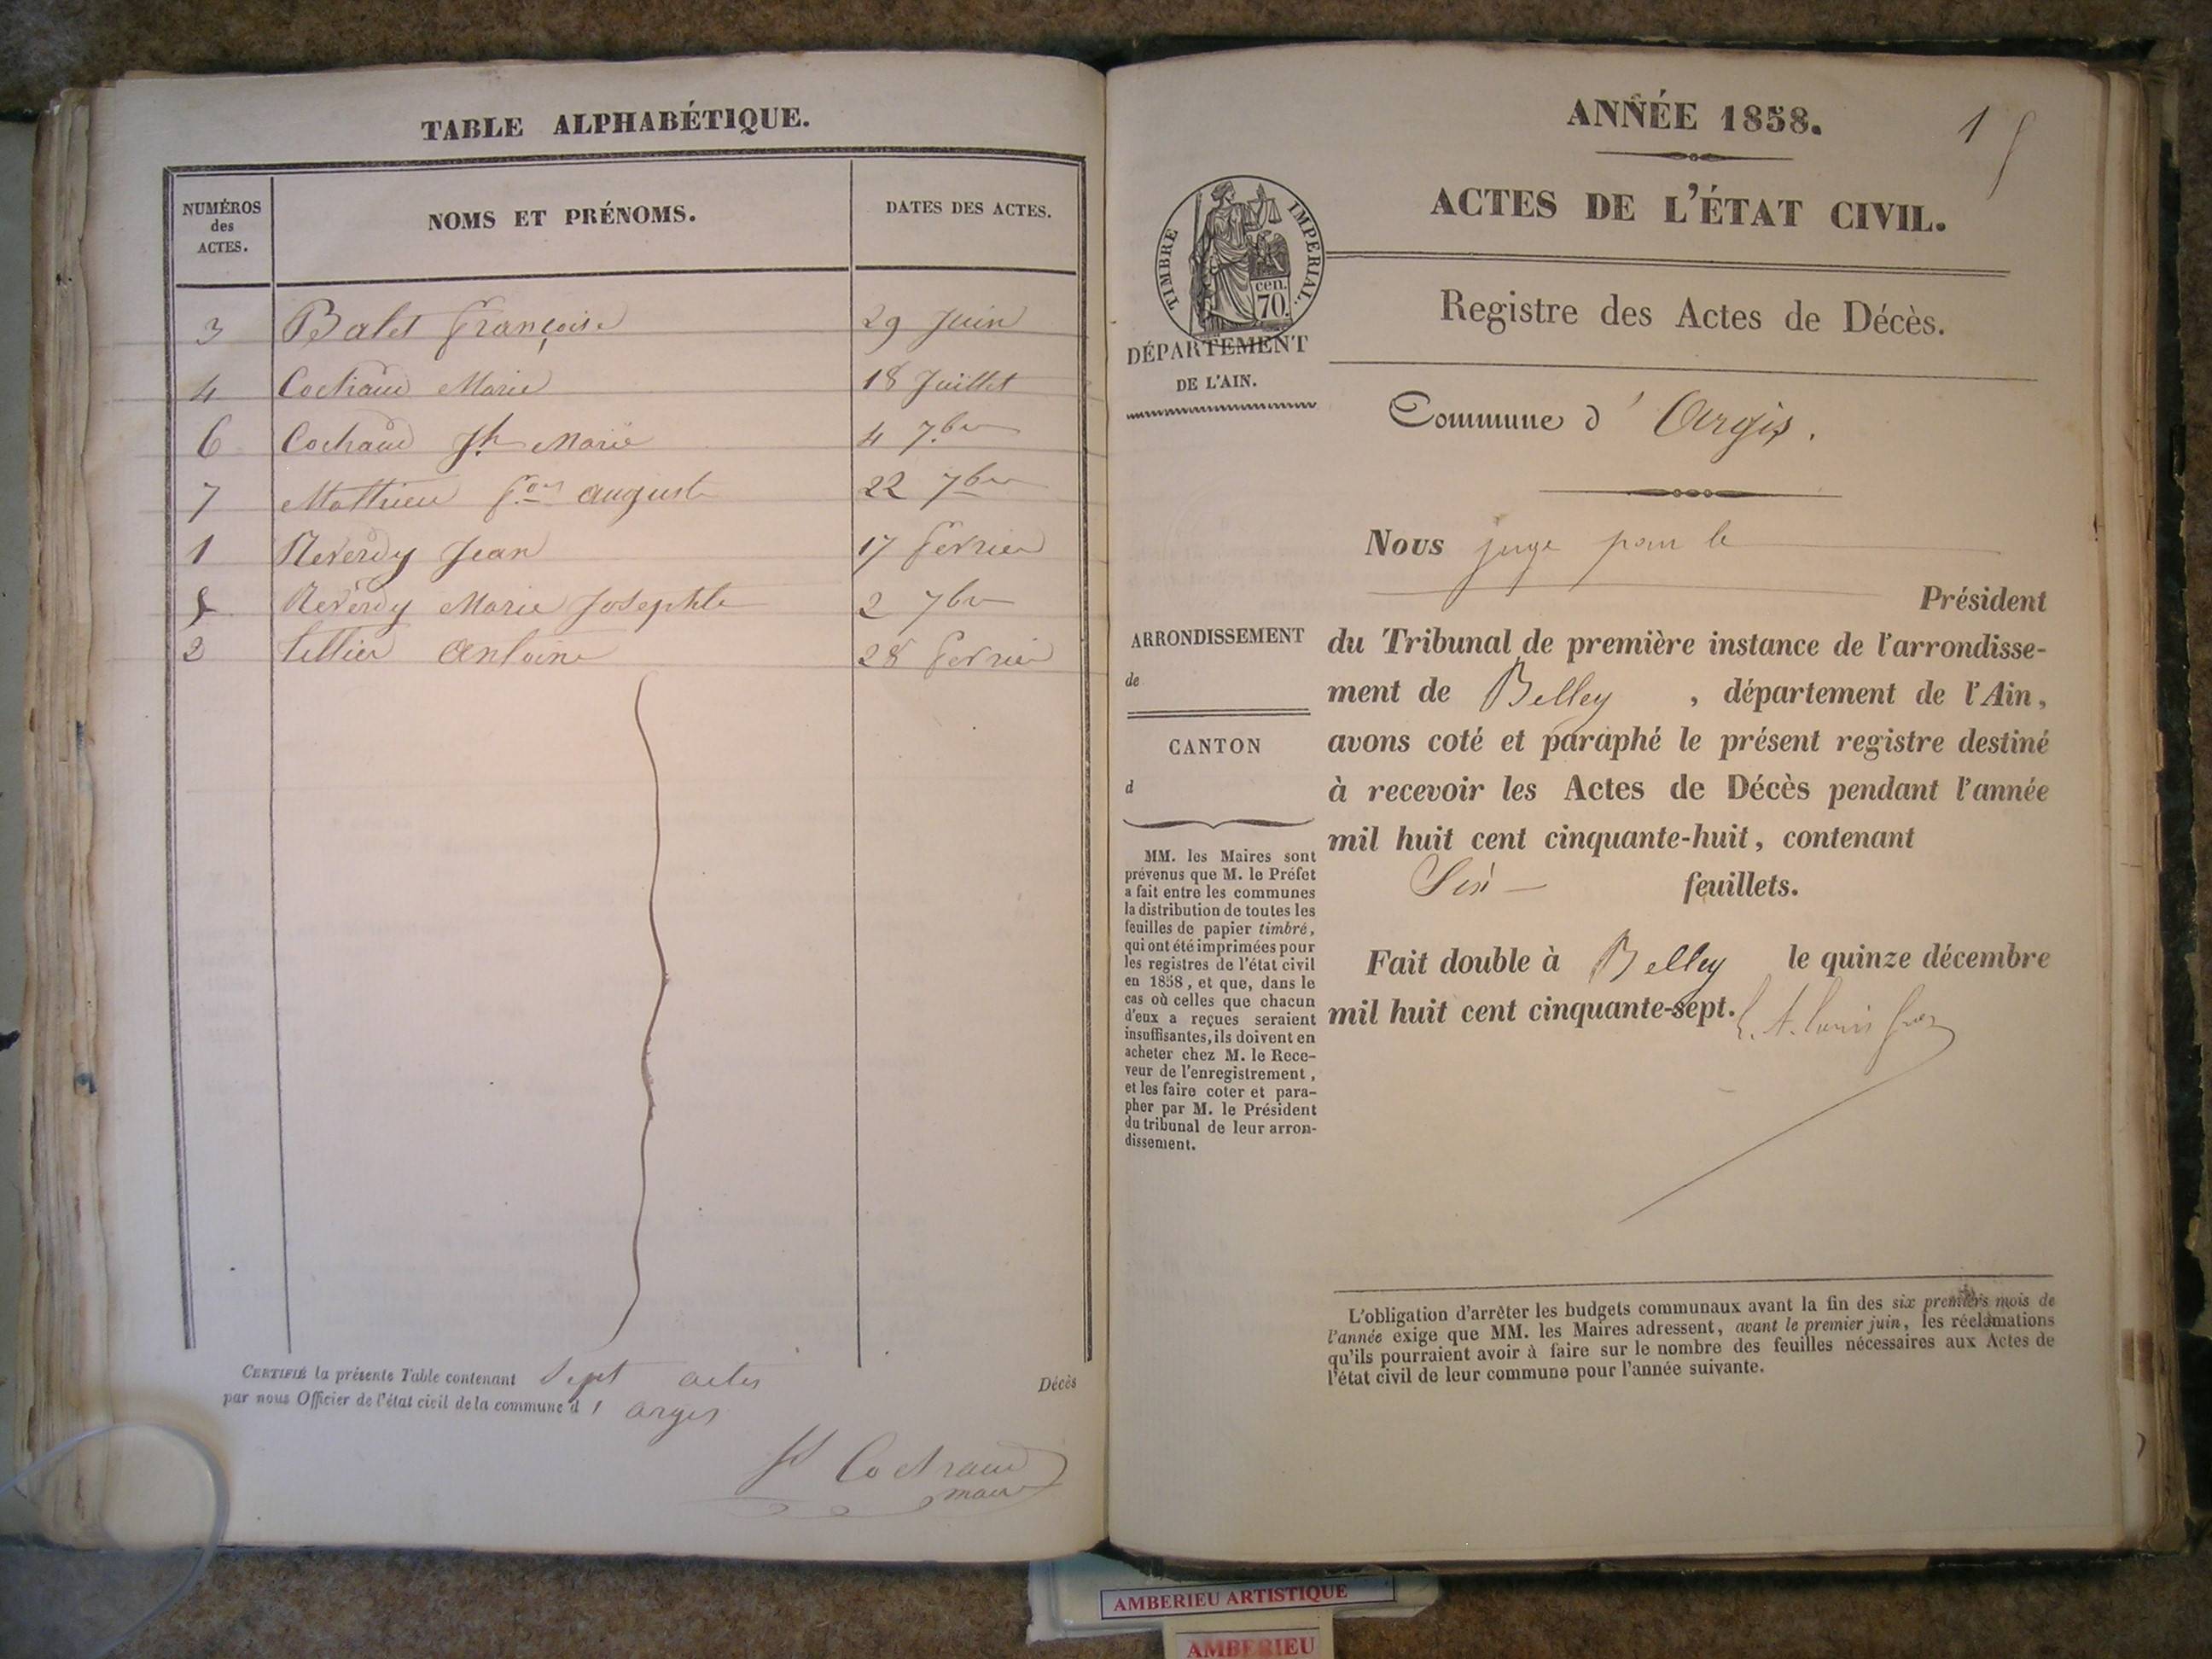 TABLE ALPHABÉTIQUE.
NUMÉROS
des
ACTES.
NOMS ET PRÉNOMS.
DATES DES ACTES.
3 Balet Françoise 29 Juin
4 Cochaud Marie 18 Juillet
6 Cochaud Jh Marie 4 7.bre
7 Matthieu f.ois auguste 22 7bre
1 Reverdy Jean 17 fevrier
5 Reverdy Marie Josephte 2 7bre
2 tellier Antoine 28 fevrier
CERTIFIÉ la présente Table contenant Sept actes
par nous Officier de l'état civil de la commune d'argis
Décès
Cochaud
maire
ANNÉE 1858.
1
ACTES DE L'ÉTAT CIVIL.
TIMBRE IMPERIAL.
cen.
70.
Registre des Actes de Décès.
DÉPARTEMENT
DE L'AIN.
Commune d'Argis.
Nous juge pour le
Président
ARRONDISSEMENT
de
CANTON
d
du Tribunal de première instance de l'arrondisse-
ment de Belley , département de l'Ain,
avons coté et paraphé le présent registre destiné
à recevoir les Actes de Décès pendant l'année
mil huit cent cinquante-huit, contenant
Six feuillets.
Fait double à Belley le quinze décembre
mil huit cent cinquante-sept.
MM. les Maires sont
prévenus que M. le Préfet
a fait entre les communes
la distribution de toutes les
feuilles de papier timbré,
qui ont été imprimées pour
les registres de l'état civil
en 1858, et que, dans le
cas où celles que chacun
d'eux a reçues seraient
insuffisantes, ils doivent en
acheter chez M. le Rece-
veur de l'enregistrement,
et les faire coter et para-
pher par M. le Président
du tribunal de leur arron-
dissement.
L'obligation d'arrêter les budgets communaux avant la fin des six premiers mois de
l'année exige que MM. les Maires adressent, avant le premier juin, les réclamations
qu'ils pourraient avoir à faire sur le nombre des feuilles nécessaires aux Actes de
l'état civil de leur commune pour l'année suivante.
AMBERIEU ARTISTIQUE
AMBERIEU